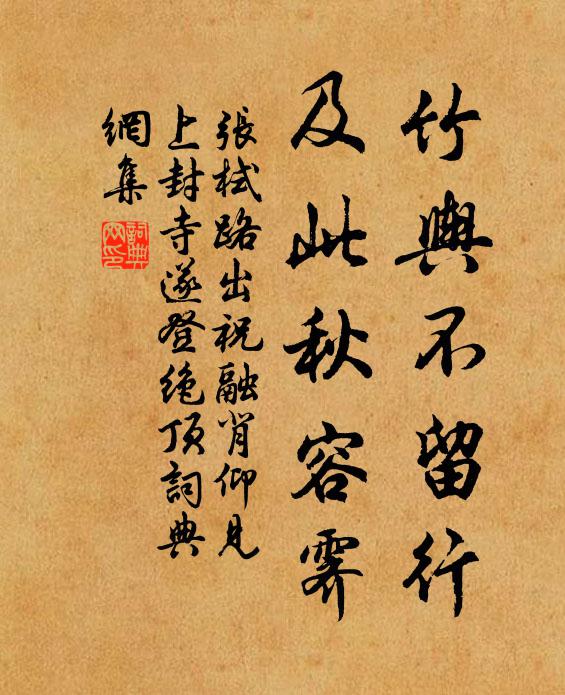 竹輿不留行
及此秋容霽
張栻路出祝融背仰見
上封寺遂登絶頂詞典
網集
詞典
网印